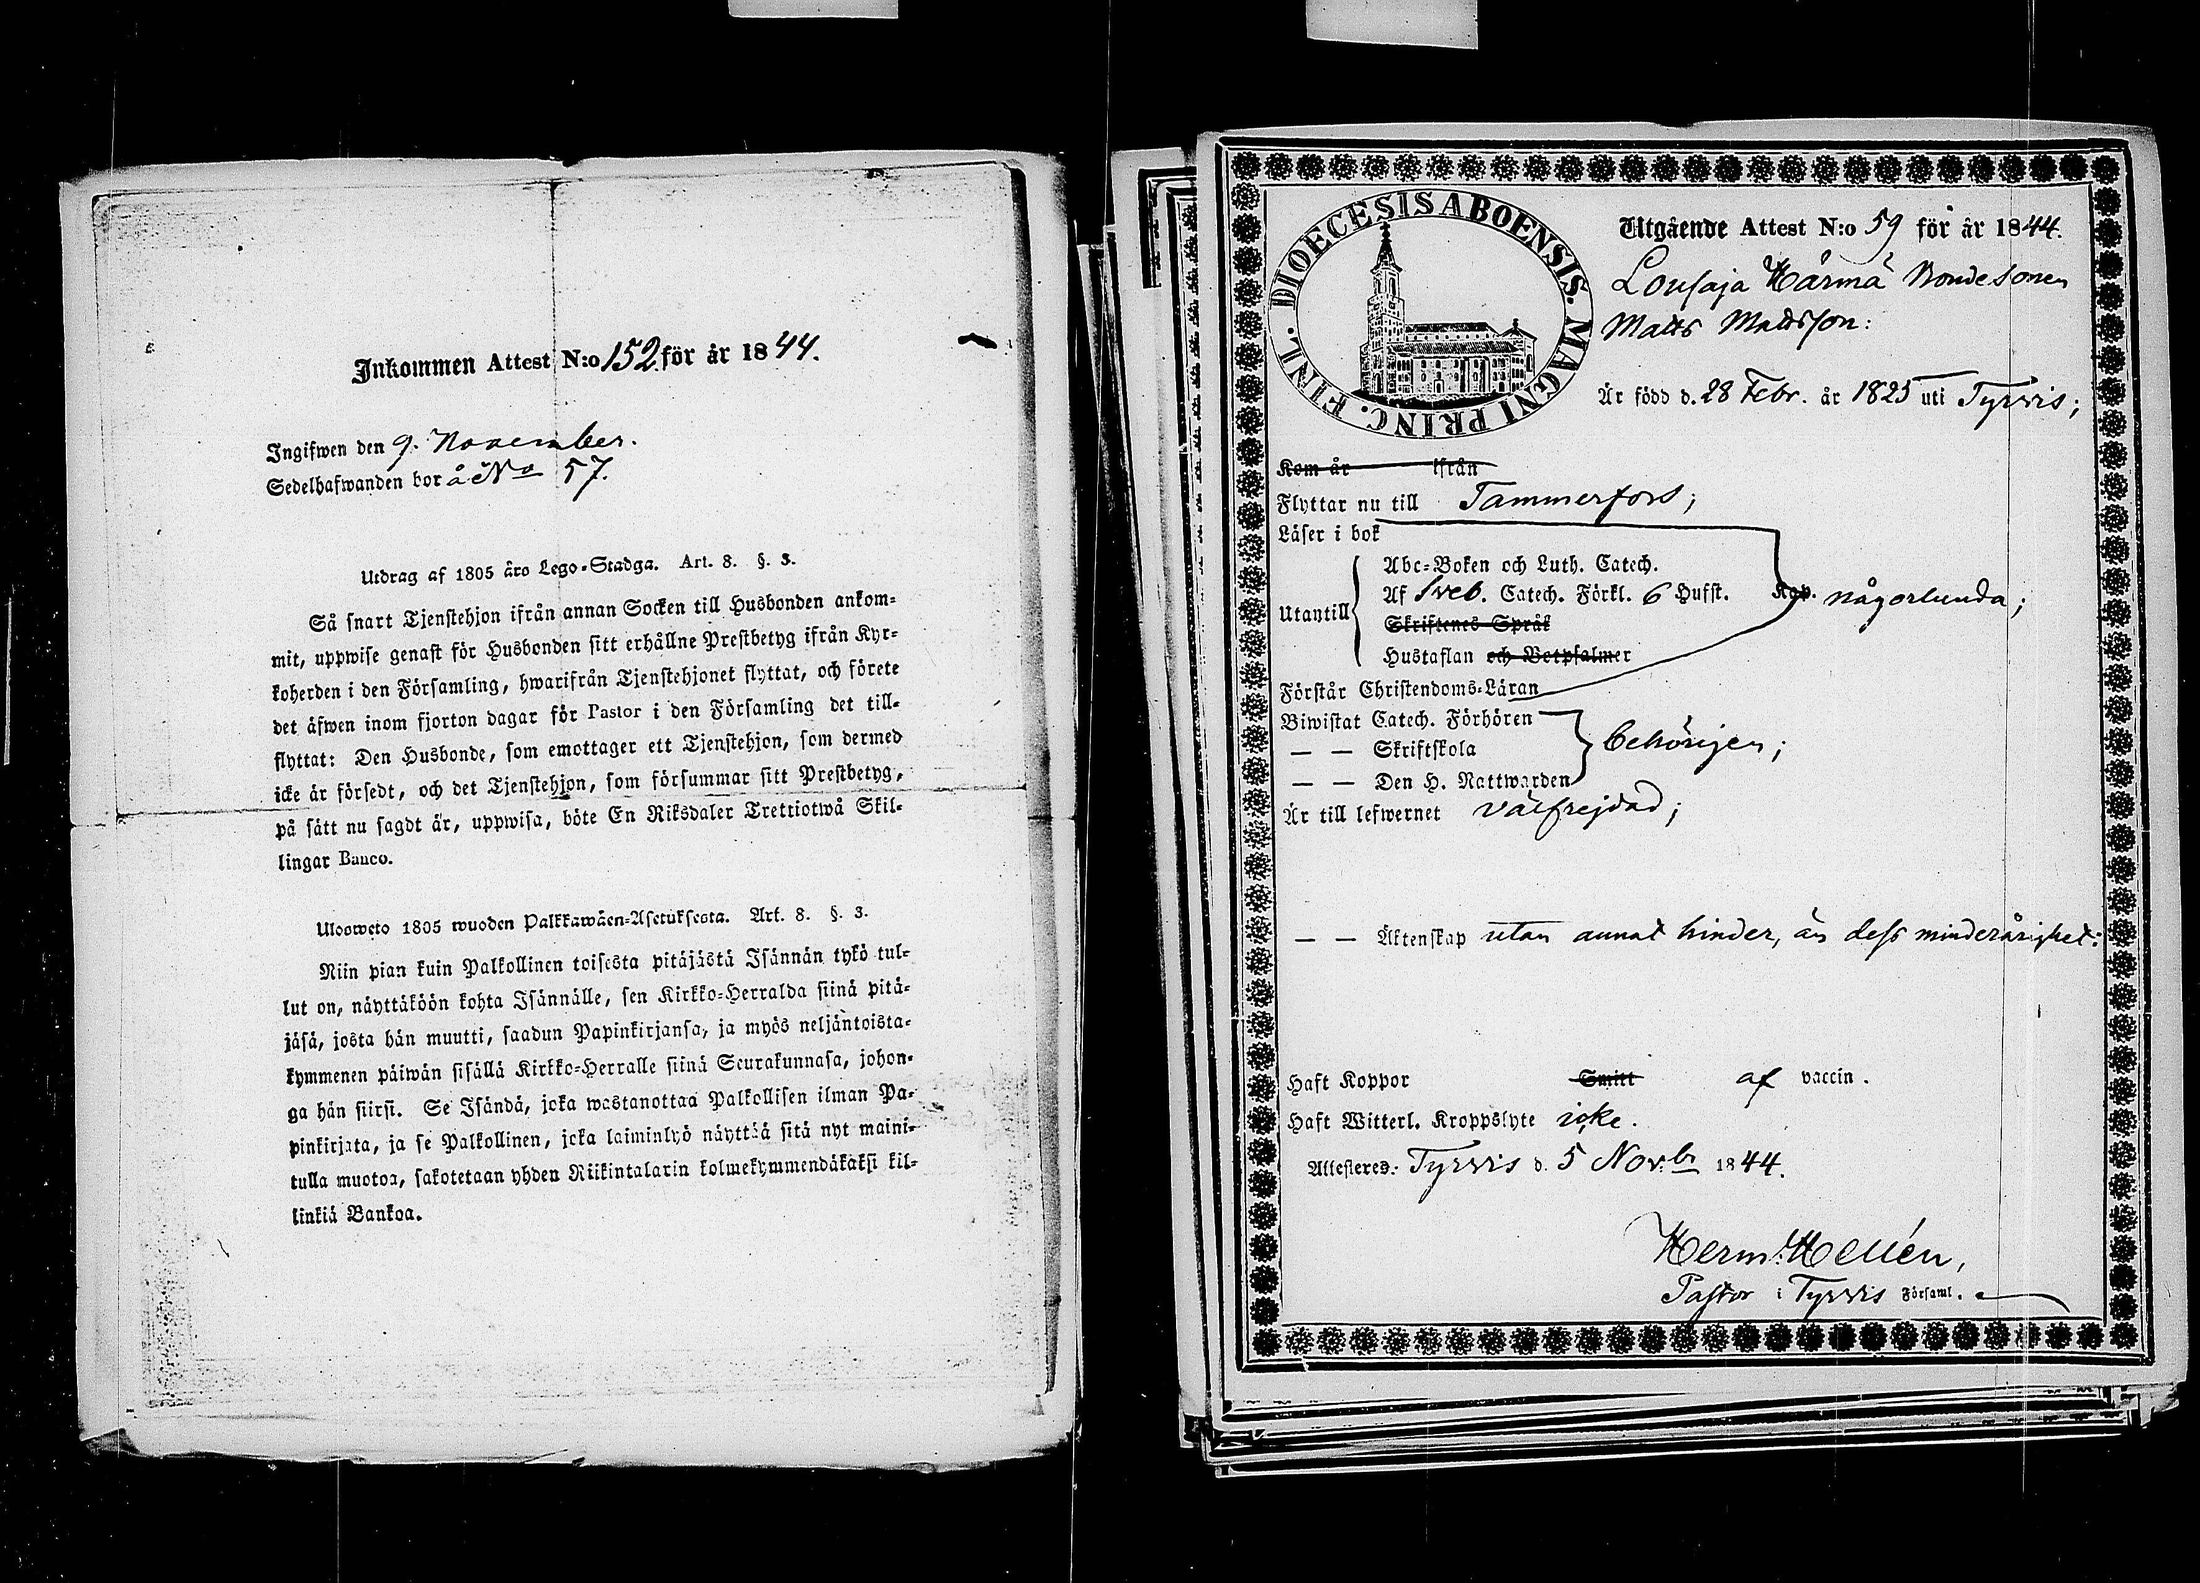 Inkommen Attest N:o 152 för år 1844.
Ingifwen den 9. November.
Sedelhafwanden bor å No 57.
Utdrag af 1805 åro Lego-Stadga. Art. 8. §. 3.
Så snart Tjenstehjon ifrån annan Socken till Husbonden ankom-
mit, uppwise genast för Husbonden sitt erhållne Prestbetyg ifrån Kyr-
koherden i den Församling, hwarifrån Tjenstehjonet flyttat, och förete
det äfwen inom fjorton dagar för Pastor i den Församling det till-
flyttat: Den Husbonde, som emottager ett Tjenstehjon, som dermed
icke är försedt, och det Tjenstehjon, som försummar sitt Prestbetyg,
på sätt nu sagdt är, uppwisa, böte En Riksdaler Trettiotwå Skil-
lingar Banco.
Ulosweto 1805 wuoden Palkkawäen-Asetuksesta. Art. 8. §. 3.
Niin pian kuin Palkollinen toisesta pitäjästä Isännän tykö tul-
lut on, näyttäköön kohta Isännälle, sen Kirkko-Herralda siinä pitä-
jäsä, josta hän muutti, saadun Papinkirjansa, ja myös neljäntoista-
kymmenen päiwän sisällä Kirkko-Herralle siinä Seurakunnasa, johon-
ga hän siirsi. Se Isändä, joka wastanottaa Palkollisen ilman Pa-
pinkirjata, ja se Palkollinen, joka laiminlyö näyttää sitä nyt maini-
tulla muotoa, sakotetaan yhden Riikintalarin kolmekymmendäkaksi kil-
linkiä Bankoa.
DIOECESIS ABOENSIS. MAGNI PRINC. FINL.
Utgående Attest N:o 59 för år 1844.
Lousaja Härmä Bondesonen
Matts Mattsson:
Är född d. 28 Febr. år 1825 uti Tyrvis;
Kom år ifrån
Flyttar nu till Tammerfors;
Läser i bok
Abc-Boken och Luth. Catech.
Utantill Af Sveb. Catech. Förkl. 6 Hufst. Kap. någorlunda;
Skriftenes Språk
Hustaflan och Botpsalmer
Förstår Christendoms-Läran
Biwistat Catech. Förhören
— — Skriftskola behörigen;
— — Den H. Nattwarden
Är till lefwernet välfrejdad;
— — Äktenskap utan annat hinder, än dess minderårighet:
Haft Koppor Smitt af vaccin.
Haft Witterl. Kroppslyte icke.
Attesteres: Tyrvis d. 5 Nov:br 1844.
Herm: Hellén,
Pastor i Tyrvis Församl.